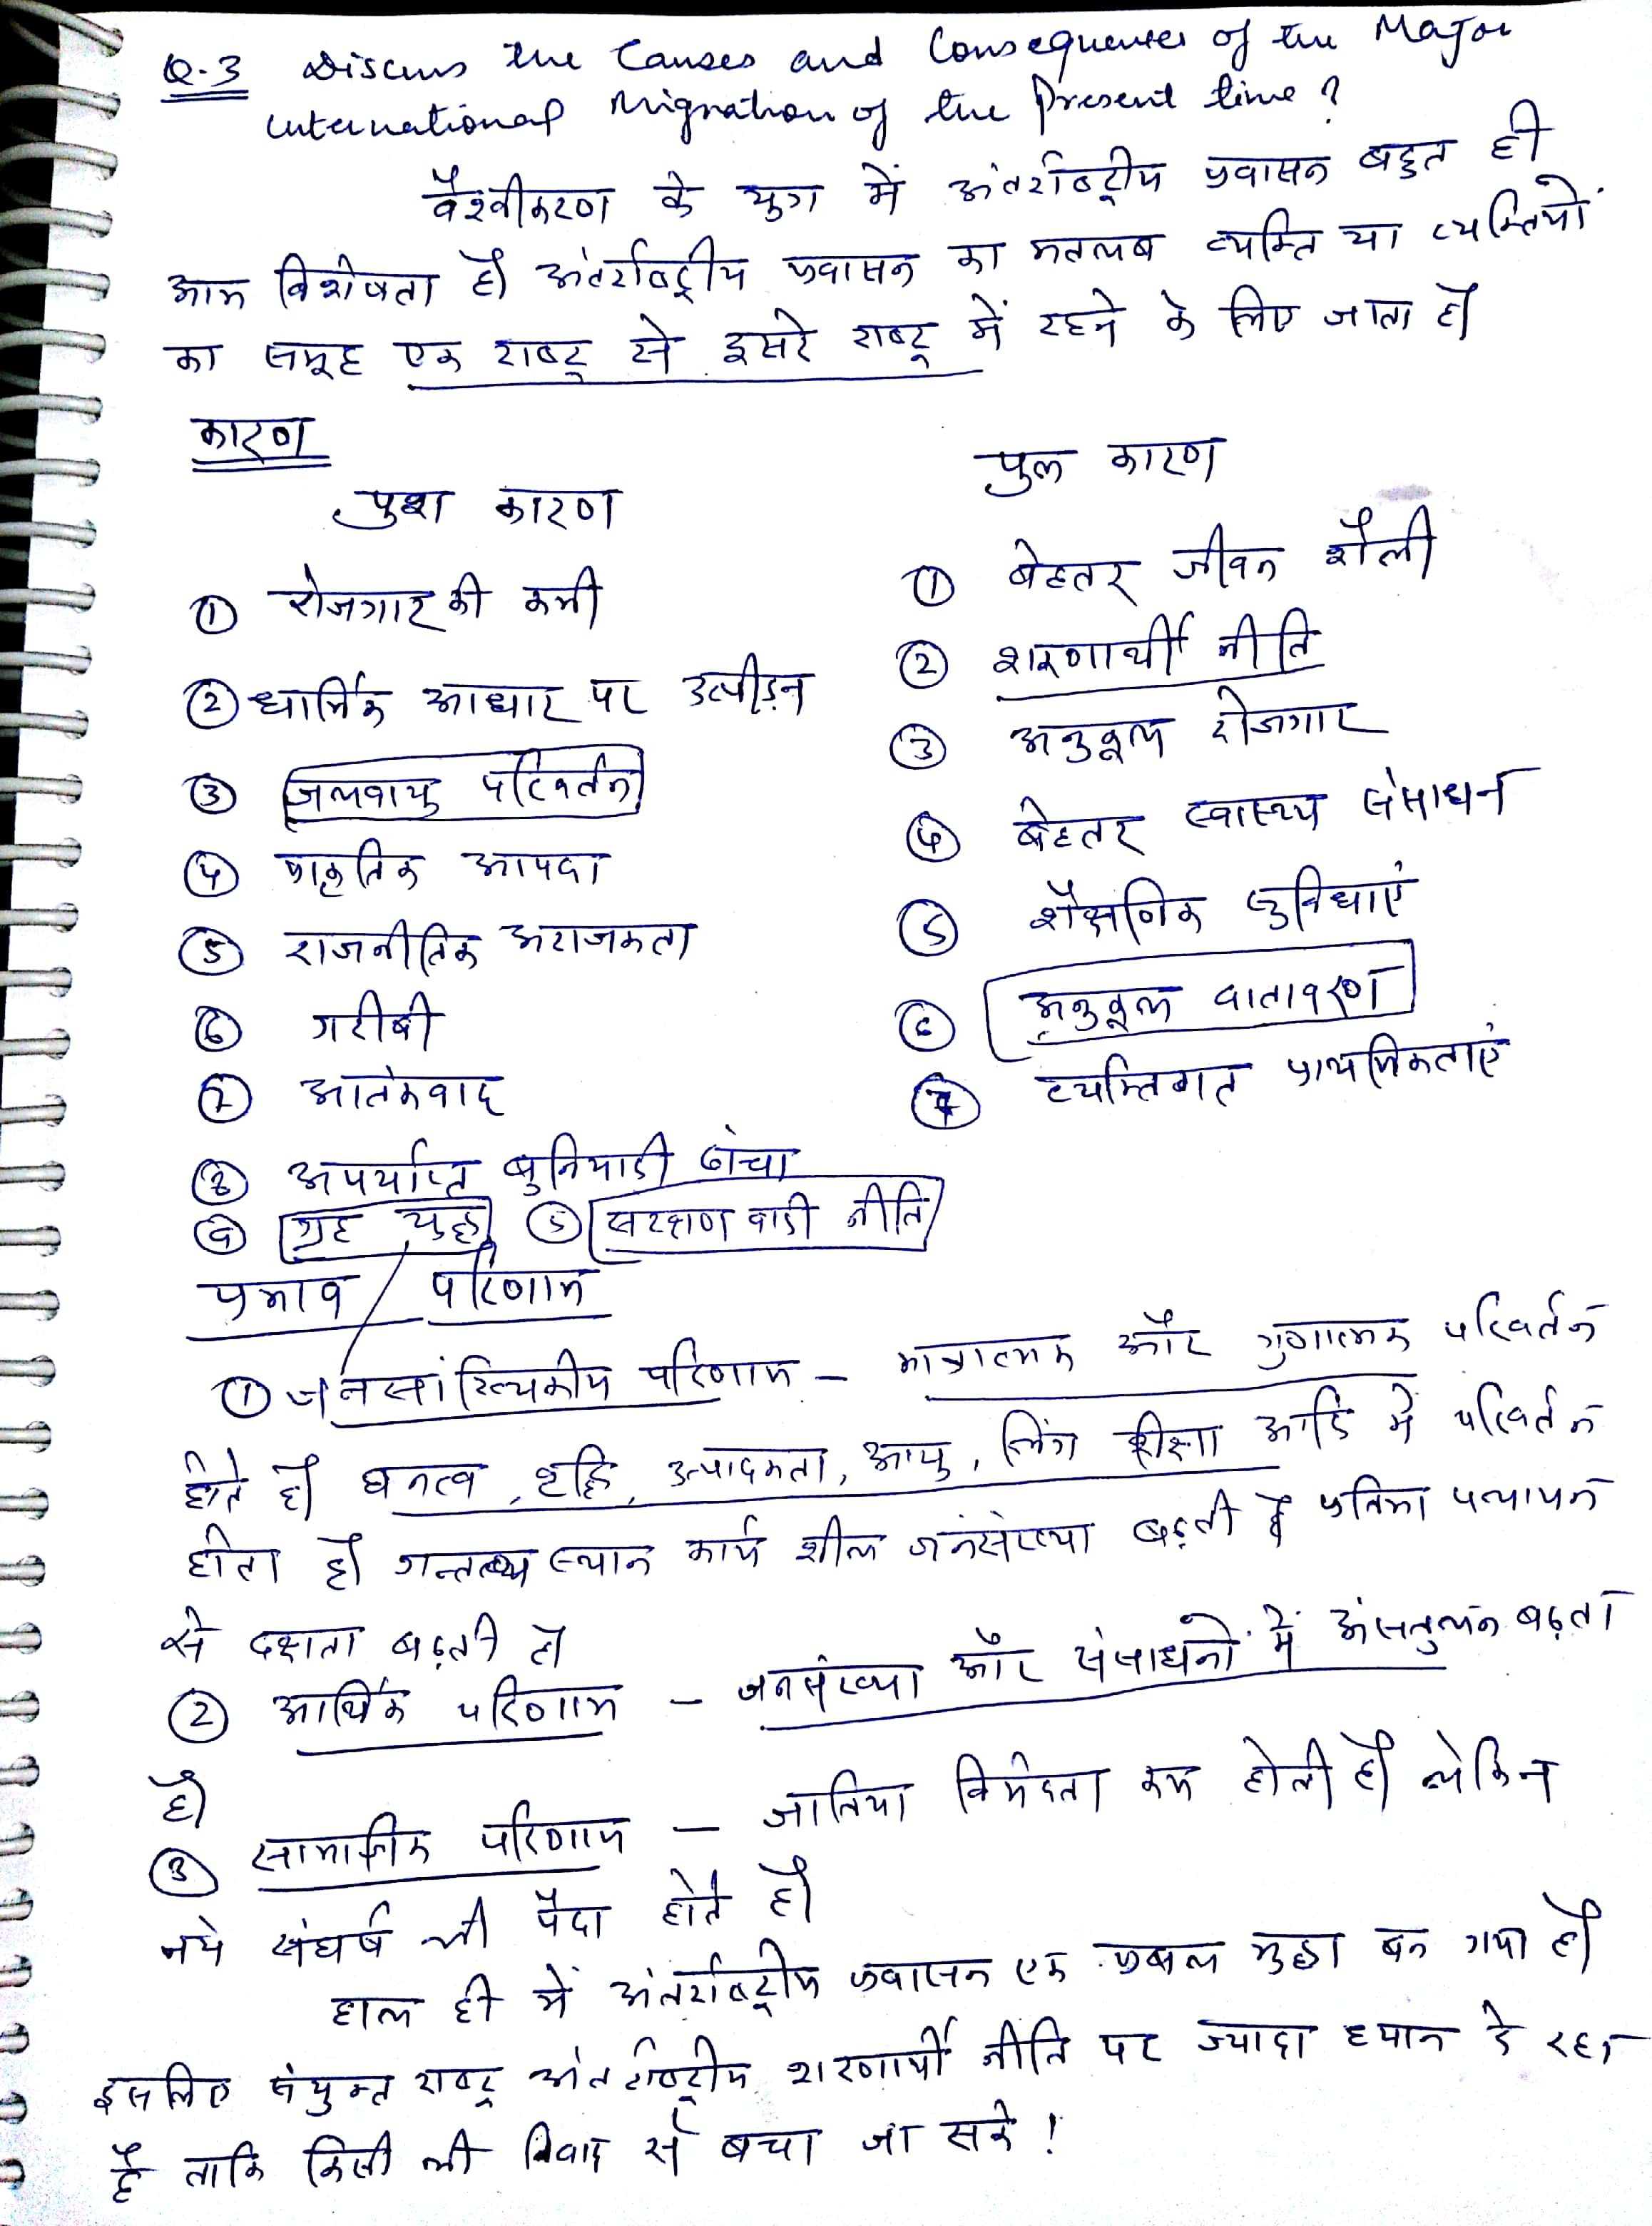 Q.3 Discuss the Causes and Consequences of the Major
international Migration of the Present time?
वैश्वीकरण के युग में अंतर्राष्ट्रीय प्रवासन बहुत ही
आम विशेषता है। अंतर्राष्ट्रीय प्रवासन का मतलब व्यक्ति या व्यक्तियों
का समूह एक राष्ट्र से दूसरे राष्ट्र में रहने के लिए जाता है।
कारण
पुश कारण
① रोजगार की कमी
② धार्मिक आधार पर उत्पीड़न
③ जलवायु परिवर्तन
④ प्राकृतिक आपदा
⑤ राजनीतिक अराजकता
⑥ गरीबी
⑦ आतंकवाद
⑧ अपर्याप्त बुनियादी ढांचा
⑨ गृह युद्ध ⑤ संरक्षण वादी नीति
पुल कारण
① बेहतर जीवन शैली
② शरणार्थी नीति
③ अनुकूल रोजगार
④ बेहतर स्वास्थ्य संसाधन
⑤ शैक्षणिक सुविधाएं
⑥ अनुकूल वातावरण
⑦ व्यक्तिगत प्राथमिकताएं
प्रभाव / परिणाम
① जनसांख्यिकीय परिणाम - मात्रात्मक और गुणात्मक परिवर्तन
होते है। घनत्व, वृद्धि, उत्पादकता, आयु, लिंग शिक्षा आदि में परिवर्तन
होता है। गन्तव्य स्थान कार्य शील जनसंख्या बढ़ती है प्रतिभा पलायन
से दक्षता बढ़ती है।
② आर्थिक परिणाम - जनसंख्या और संसाधनों में अंसतुलन बढ़ता
है।
③ सामाजिक परिणाम - जातिया विभेदता कम होती है। लेकिन
नये संघर्ष भी पैदा होते है।
हाल ही में अंतर्राष्ट्रीय प्रवासन एक प्रबल मुद्दा बन गया है।
इसलिए संयुक्त राष्ट्र अंतर्राष्ट्रीय शरणार्थी नीति पर ज्यादा ध्यान दे रहा
है ताकि किसी भी विवाद से बचा जा सके!